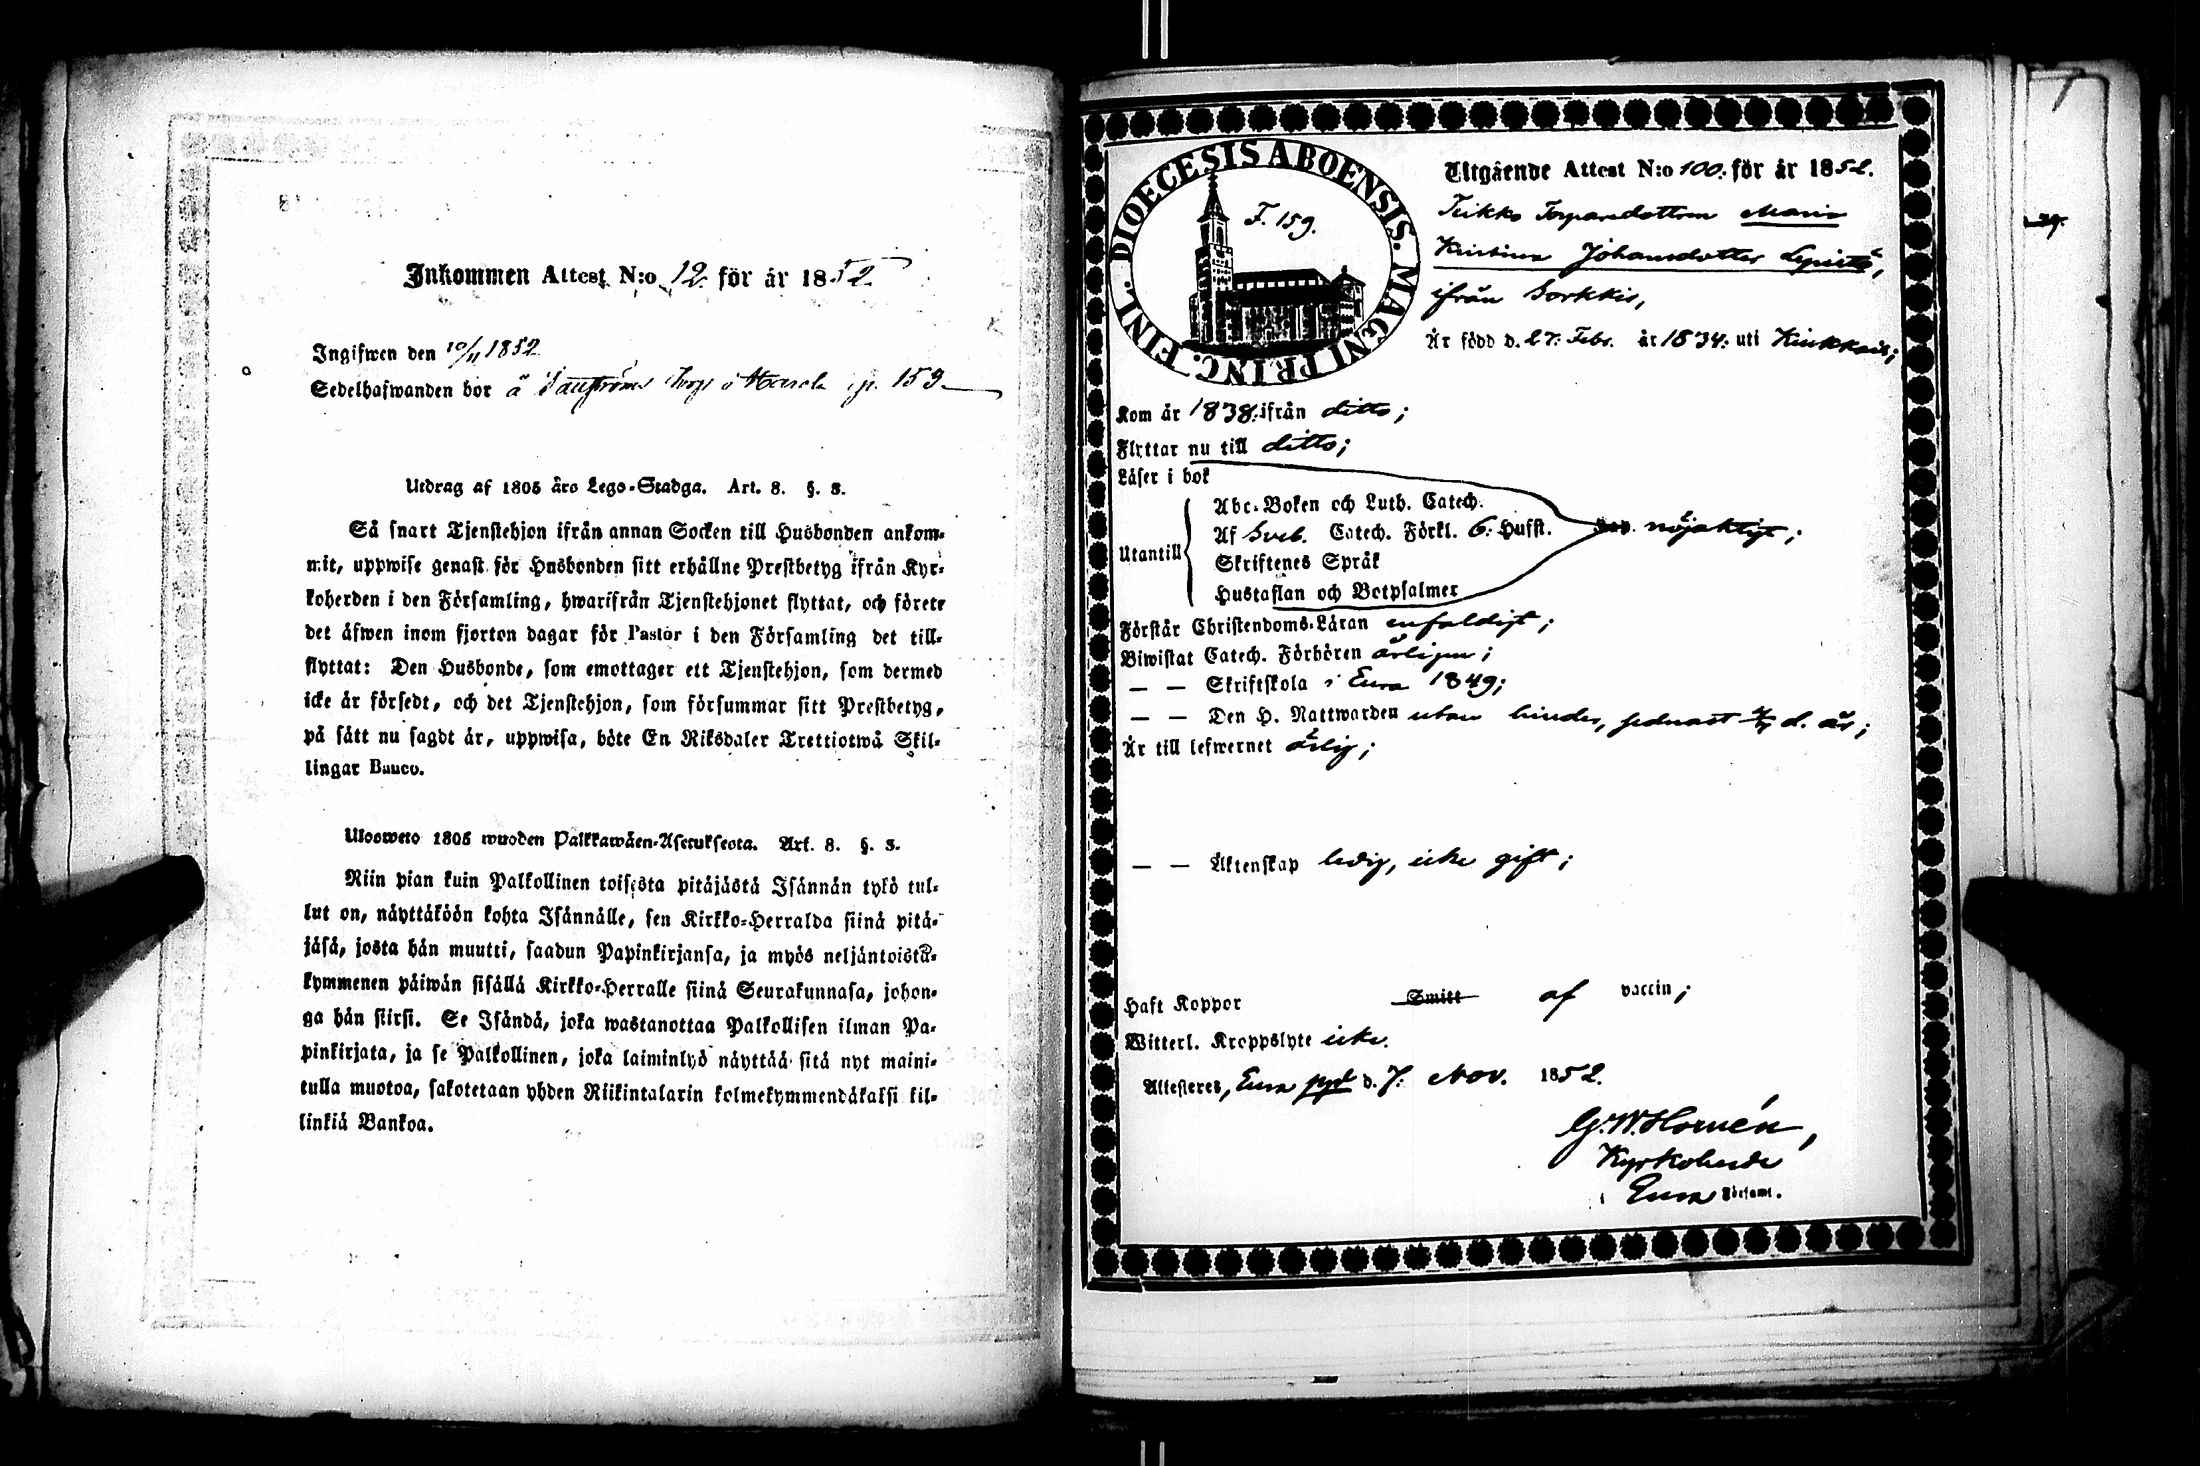 Inkommen Attest N:o 12. för år 1852
Ingifwen den 10/11 1852
Sedelhafwanden bor å torp i p. 159
Utdrag af 1805 års Lego-Stadga. Art. 8. §. 3.
Så snart Tjenstehjon ifrån annan Socken till Husbonden ankom-
mit, uppwise genast för Husbonden sitt erhållne Prestbetyg ifrån Kyr-
koherden i den Församling, hwarifrån Tjenstehjonet flyttat, och förete
det äfwen inom fjorton dagar för Pastor i den Församling det till-
flyttat: Den Husbonde, som emottager ett Tjenstehjon, som dermed
icke är försedt, och det Tjenstehjon, som försummar sitt Prestbetyg,
på sätt nu sagdt är, uppwisa, böte En Riksdaler Trettiotwå Skil-
lingar Banco.
Ulosweto 1805 wuoden Palkkawäen-Asetuksesta. Art. 8. §. 3.
Niin pian kuin Palkollinen toisesta pitäjästä Isännän tykö tul-
lut on, näyttäköön kohta Isännälle, sen Kirkko-Herralda siinä pitä-
jäsä, josta hän muutti, saadun Papinkirjansa, ja myös neljäntoistä-
kymmenen päiwän sisällä Kirkko-Herralle siinä Seurakunnasa, johon-
ga hän siirsi. Se Isändä, joka wastanottaa Palkollisen ilman Pa-
pinkirjata, ja se Palkollinen, joka laiminlyö näyttää sitä nyt maini-
tulla muotoa, sakotetaan yhden Riikintalarin kolmekymmendäkaksi kil-
linkiä Bankoa.
DIOECESIS ABOENSIS. MAGNI PRINC. FINL.
F. 159.
Utgående Attest N:o 100. för år 1852.
Torparedottren Maria
Kristina Johansdotter Lepistö,
ifrån Sorkkis,
Är född d. 27. Febr. år 1834. uti Kiukkais;
Kom år 1838. ifrån ditto;
Flyttar nu till ditto;
Läser i bok
Abc-Boken och Luth. Catech.
Utantill Af Sveb. Catech. Förkl. 6. Hufst. nöjaktigt;
Skriftenes Språk
Hustaflan och Botpsalmer
Förstår Christendoms-Läran enfaldigt;
Biwistat Catech. Förhören årligen;
— — Skriftskola i Eura 1849;
— — Den H. Nattwarden utan hinder, sednast d. år;
Är till lefwernet ärlig;
— — Äktenskap ledig, icke gift;
Haft Koppor Smitt af vaccin;
Witterl. Kroppslyte icke.
Attesteres, Eura d. 7. Nov. 1852.
G. W. Homén,
Kyrkoherde
i Eura Församl.